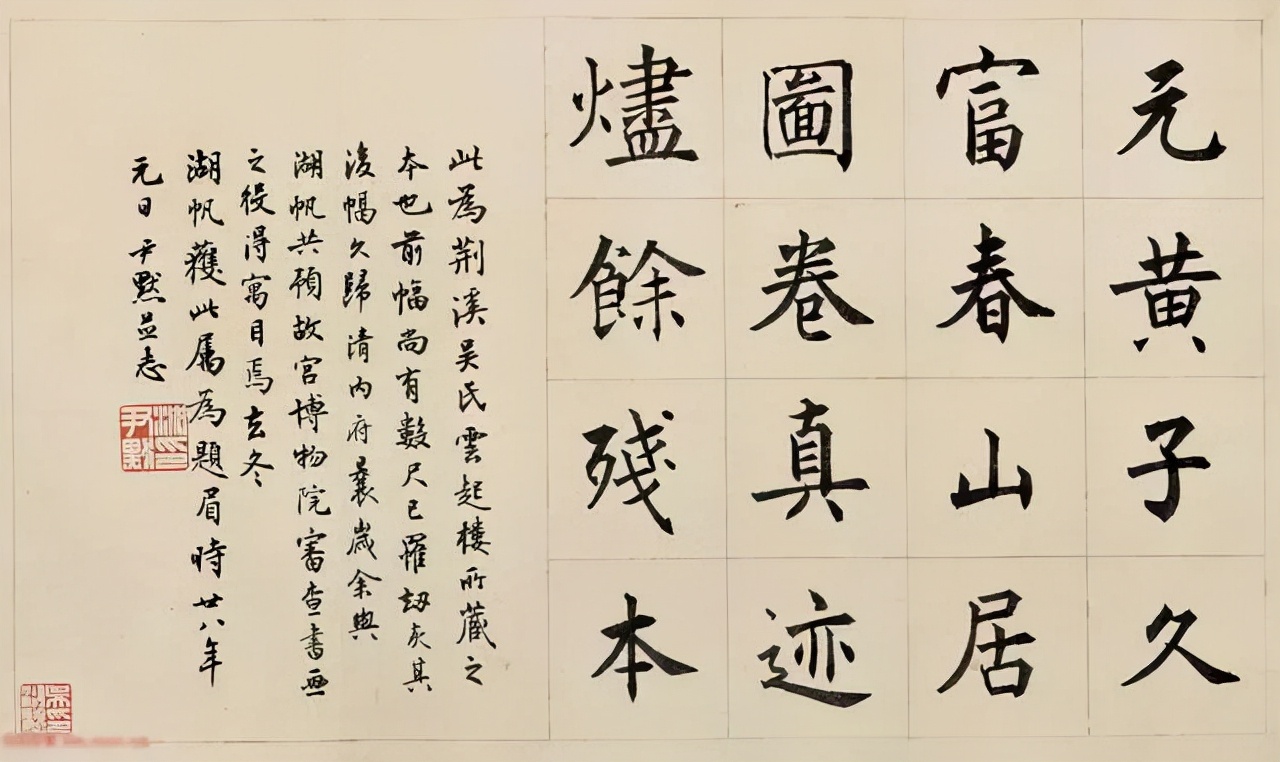 元黄子久
富春山居
圖卷真迹
燼餘殘本
此為荆溪吴氏雲起樓所藏之
本也前幅尚有數尺已罹劫灰其
後幅久歸清内府曩歲余與
湖帆共預故宫博物院審查書畫
之役得寓目焉玄冬
湖帆獲此属為題眉時廿八年
元日尹默並志
尹默